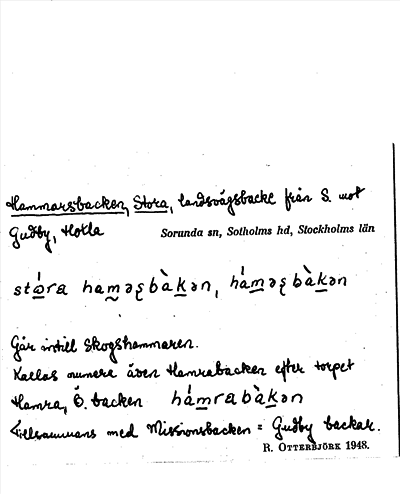 Hammarsbacken, Stora, landsvägsbacke från S. mot
Gudby, Hotla
Sorunda sn, Sotholms hd, Stockholms län
Går intill Skogshammaren.
Kallas numera även Hamrabacken efter torpet
Hamra, Ö. backen hámrabàkən
Tillsammans med Missionsbacken = Gudby backar.
R. OTTERBJÖRK 1948.